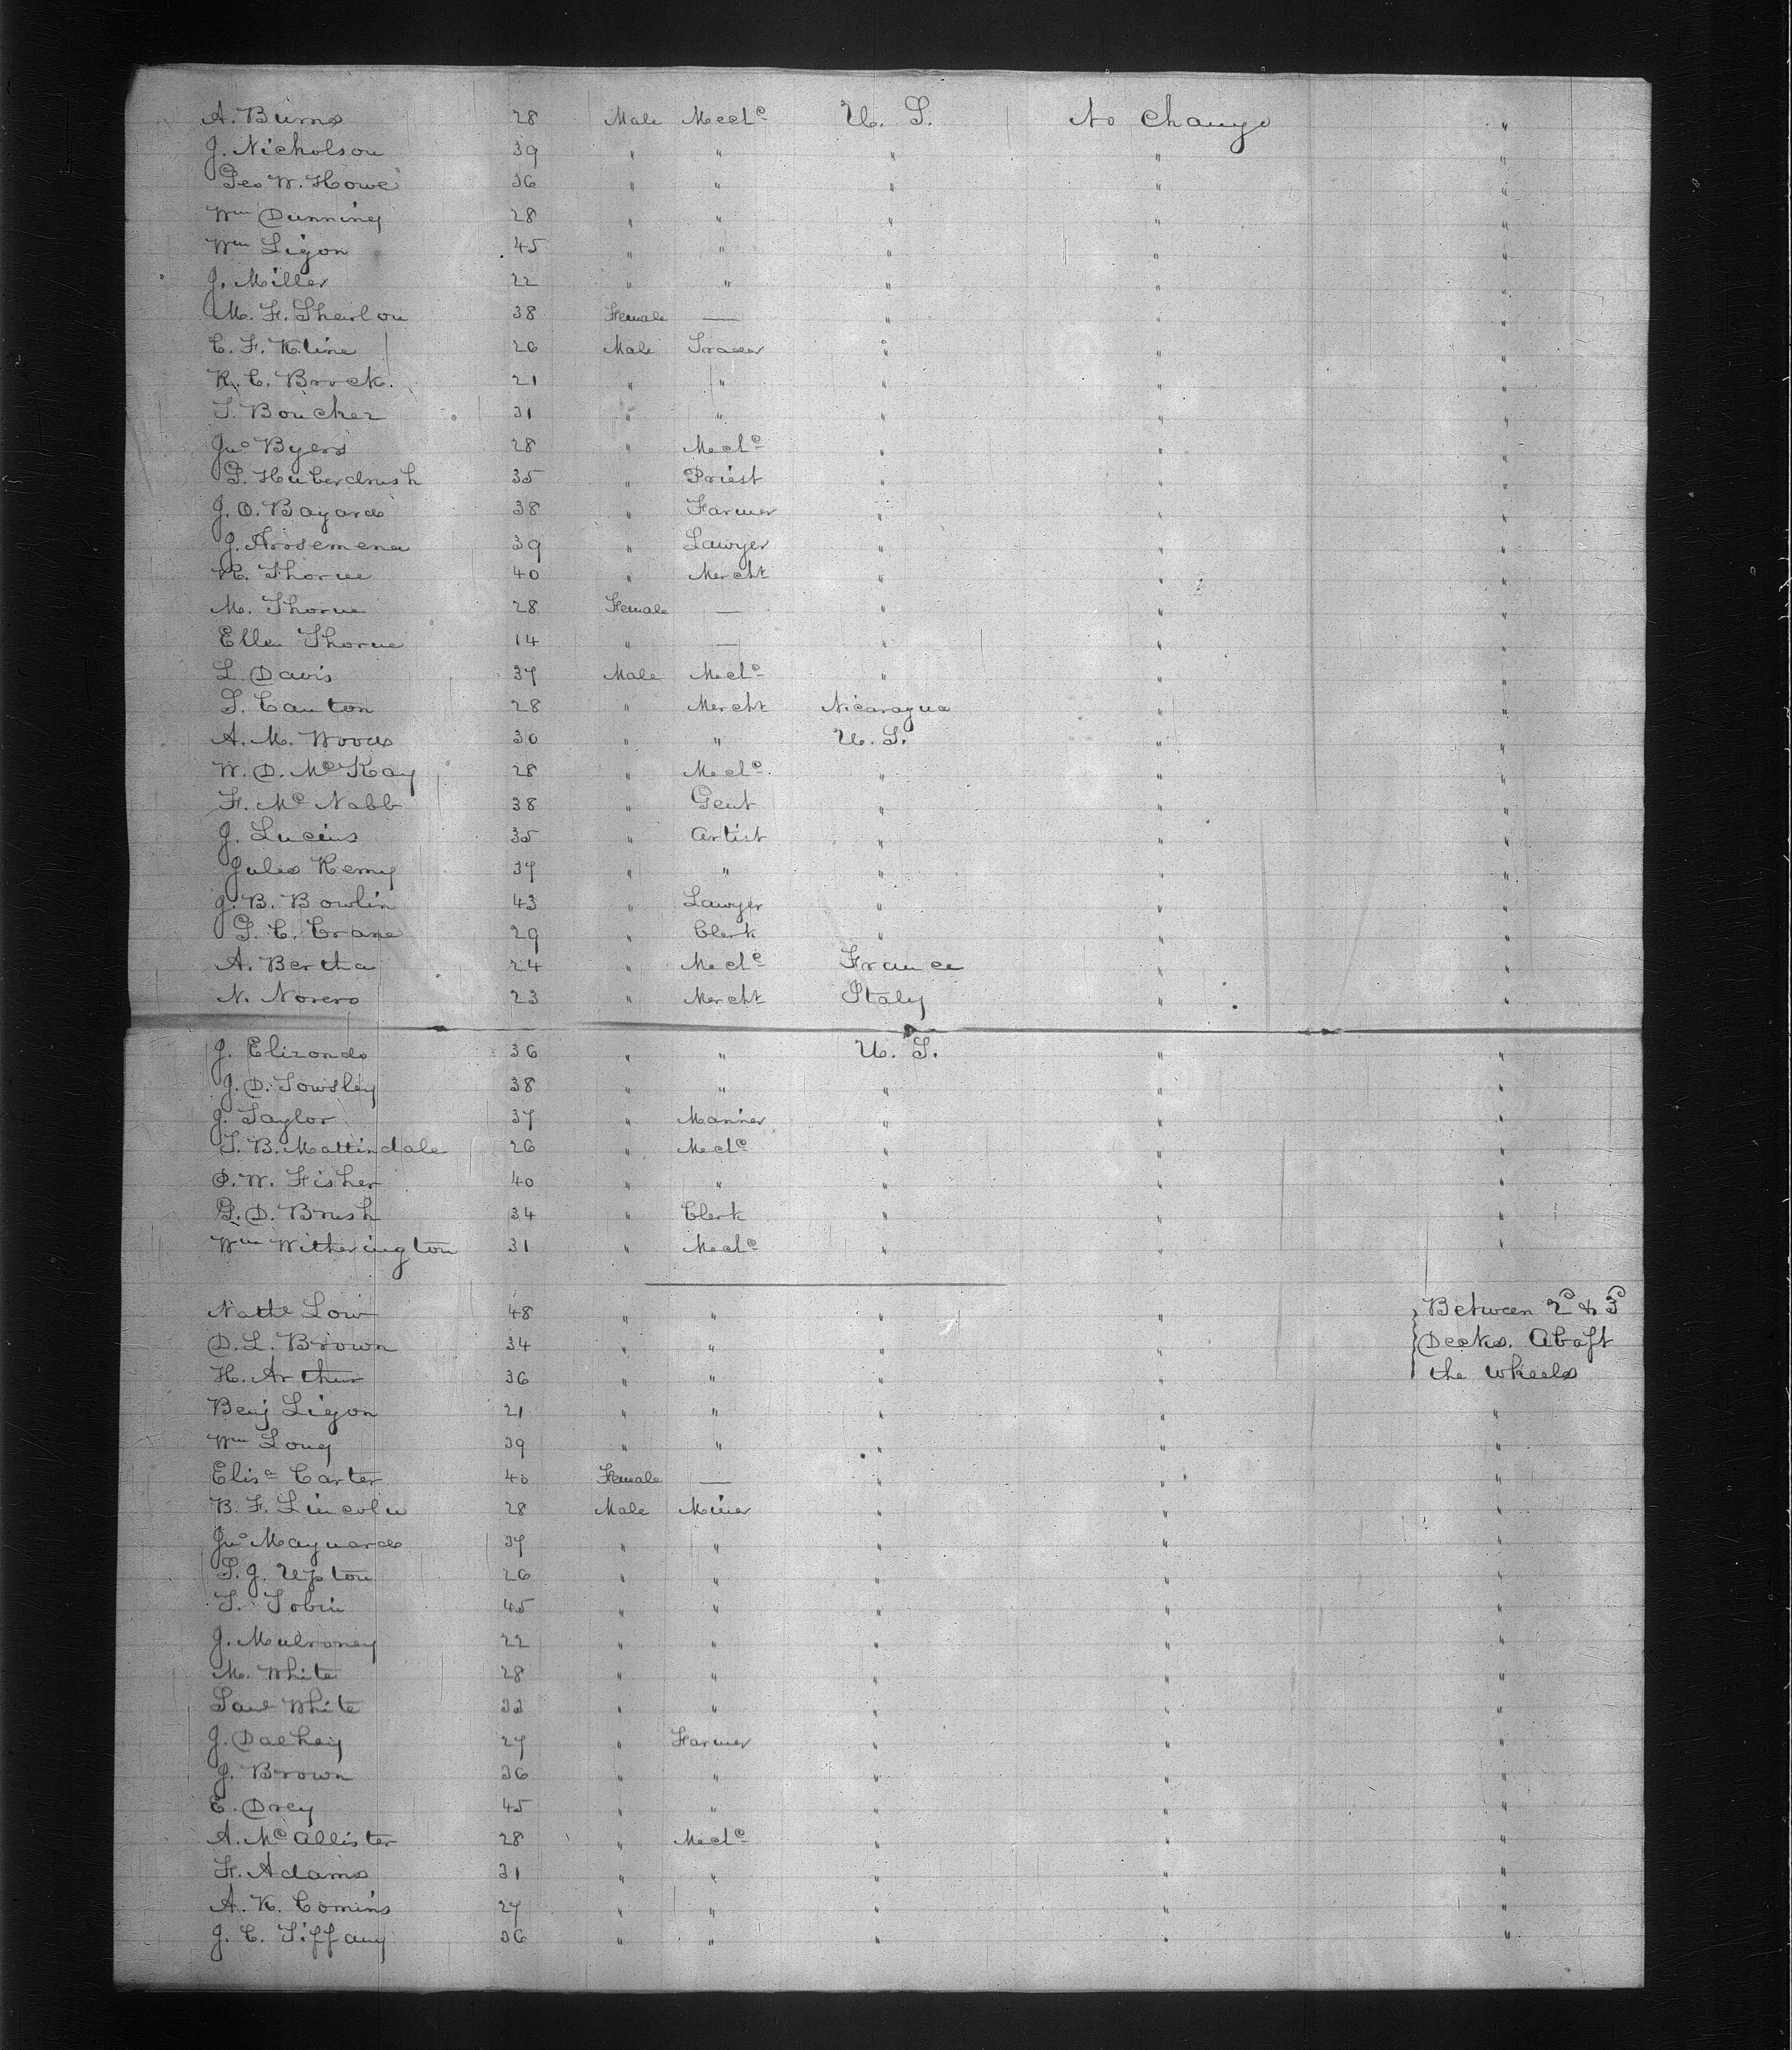 A. Burns 28 Male Mech^c U. S. No Change "
J. Nicholson 39 " " " " "
Geo W. Howe 36 " " " " "
Wm Dunning 28 " " " " "
Wm Ligon 45 " " " " "
J. Miller 22 " " " " "
M. F. 38 Female — " " "
C. F. Kline 26 Male Trader " " "
R. C. Brock. 21 " " " " "
T. Boucher 31 " " " " "
Jno Byers 28 " Mech^c " " "
35 " Priest " " "
J. O. Bayard 38 " Farmer " " "
J. Arosemena 39 " Lawyer " " "
Thorne 40 " Mercht " " "
M. Thorne 28 Female — " " "
Ellen Thorne 14 " — " " "
L. Davis 37 Male Mech^c " " "
T. Canton 28 " Mercht Nicaragua " "
A. M. Woods 30 " " U. S. " "
W. D. McKay 28 " Mech^c " " "
F. McNabb 38 " Gent " " "
J. Lucius 35 " Artist " " "
Jules Remy 37 " " " " "
J. B. Bowlin 43 " Lawyer " " "
G. C. Crane 29 " Clerk " " "
A. Bertha 24 " Mech^c France " "
N. Norero 23 " Mercht Italy " "
J. Elizondo 36 " " U. S. " "
J. D. Towsley 38 " " " " "
J. Taylor 37 " Mariner " " "
T. B. Mattindale 26 " Mech^c " " "
O. W. Fisher 40 " " " " "
G. D. Brush 34 " Clerk " " "
Wm Witherington 31 " Mech^c " " "
Nathl Low 48 " " " " Between 2d & 3d
D. L. Brown 34 " " " " Decks. Abaft
H. Arthur 36 " " " " the wheels
Benj Ligon 21 " " " " "
Wm Long 39 " " " " "
Elisa Carter 40 Female — " " "
B. F. Lincoln 28 Male Miner " " "
Jno Maynard 37 " " " " "
S. J. Upton 26 " " " " "
T. Tobin 45 " " " " "
J. Mulroney 22 " " " " "
M. White 28 " " " " "
Saml White 33 " " " " "
J. Dalhey 27 " Farmer " " "
J. Brown 36 " " " " "
E. Drey 45 " " " " "
A. McAllister 28 " Mech^c " " "
F. Adams 31 " " " " "
A. K. Comins 27 " " " " "
J. C. Tiffany 36 " " " " "